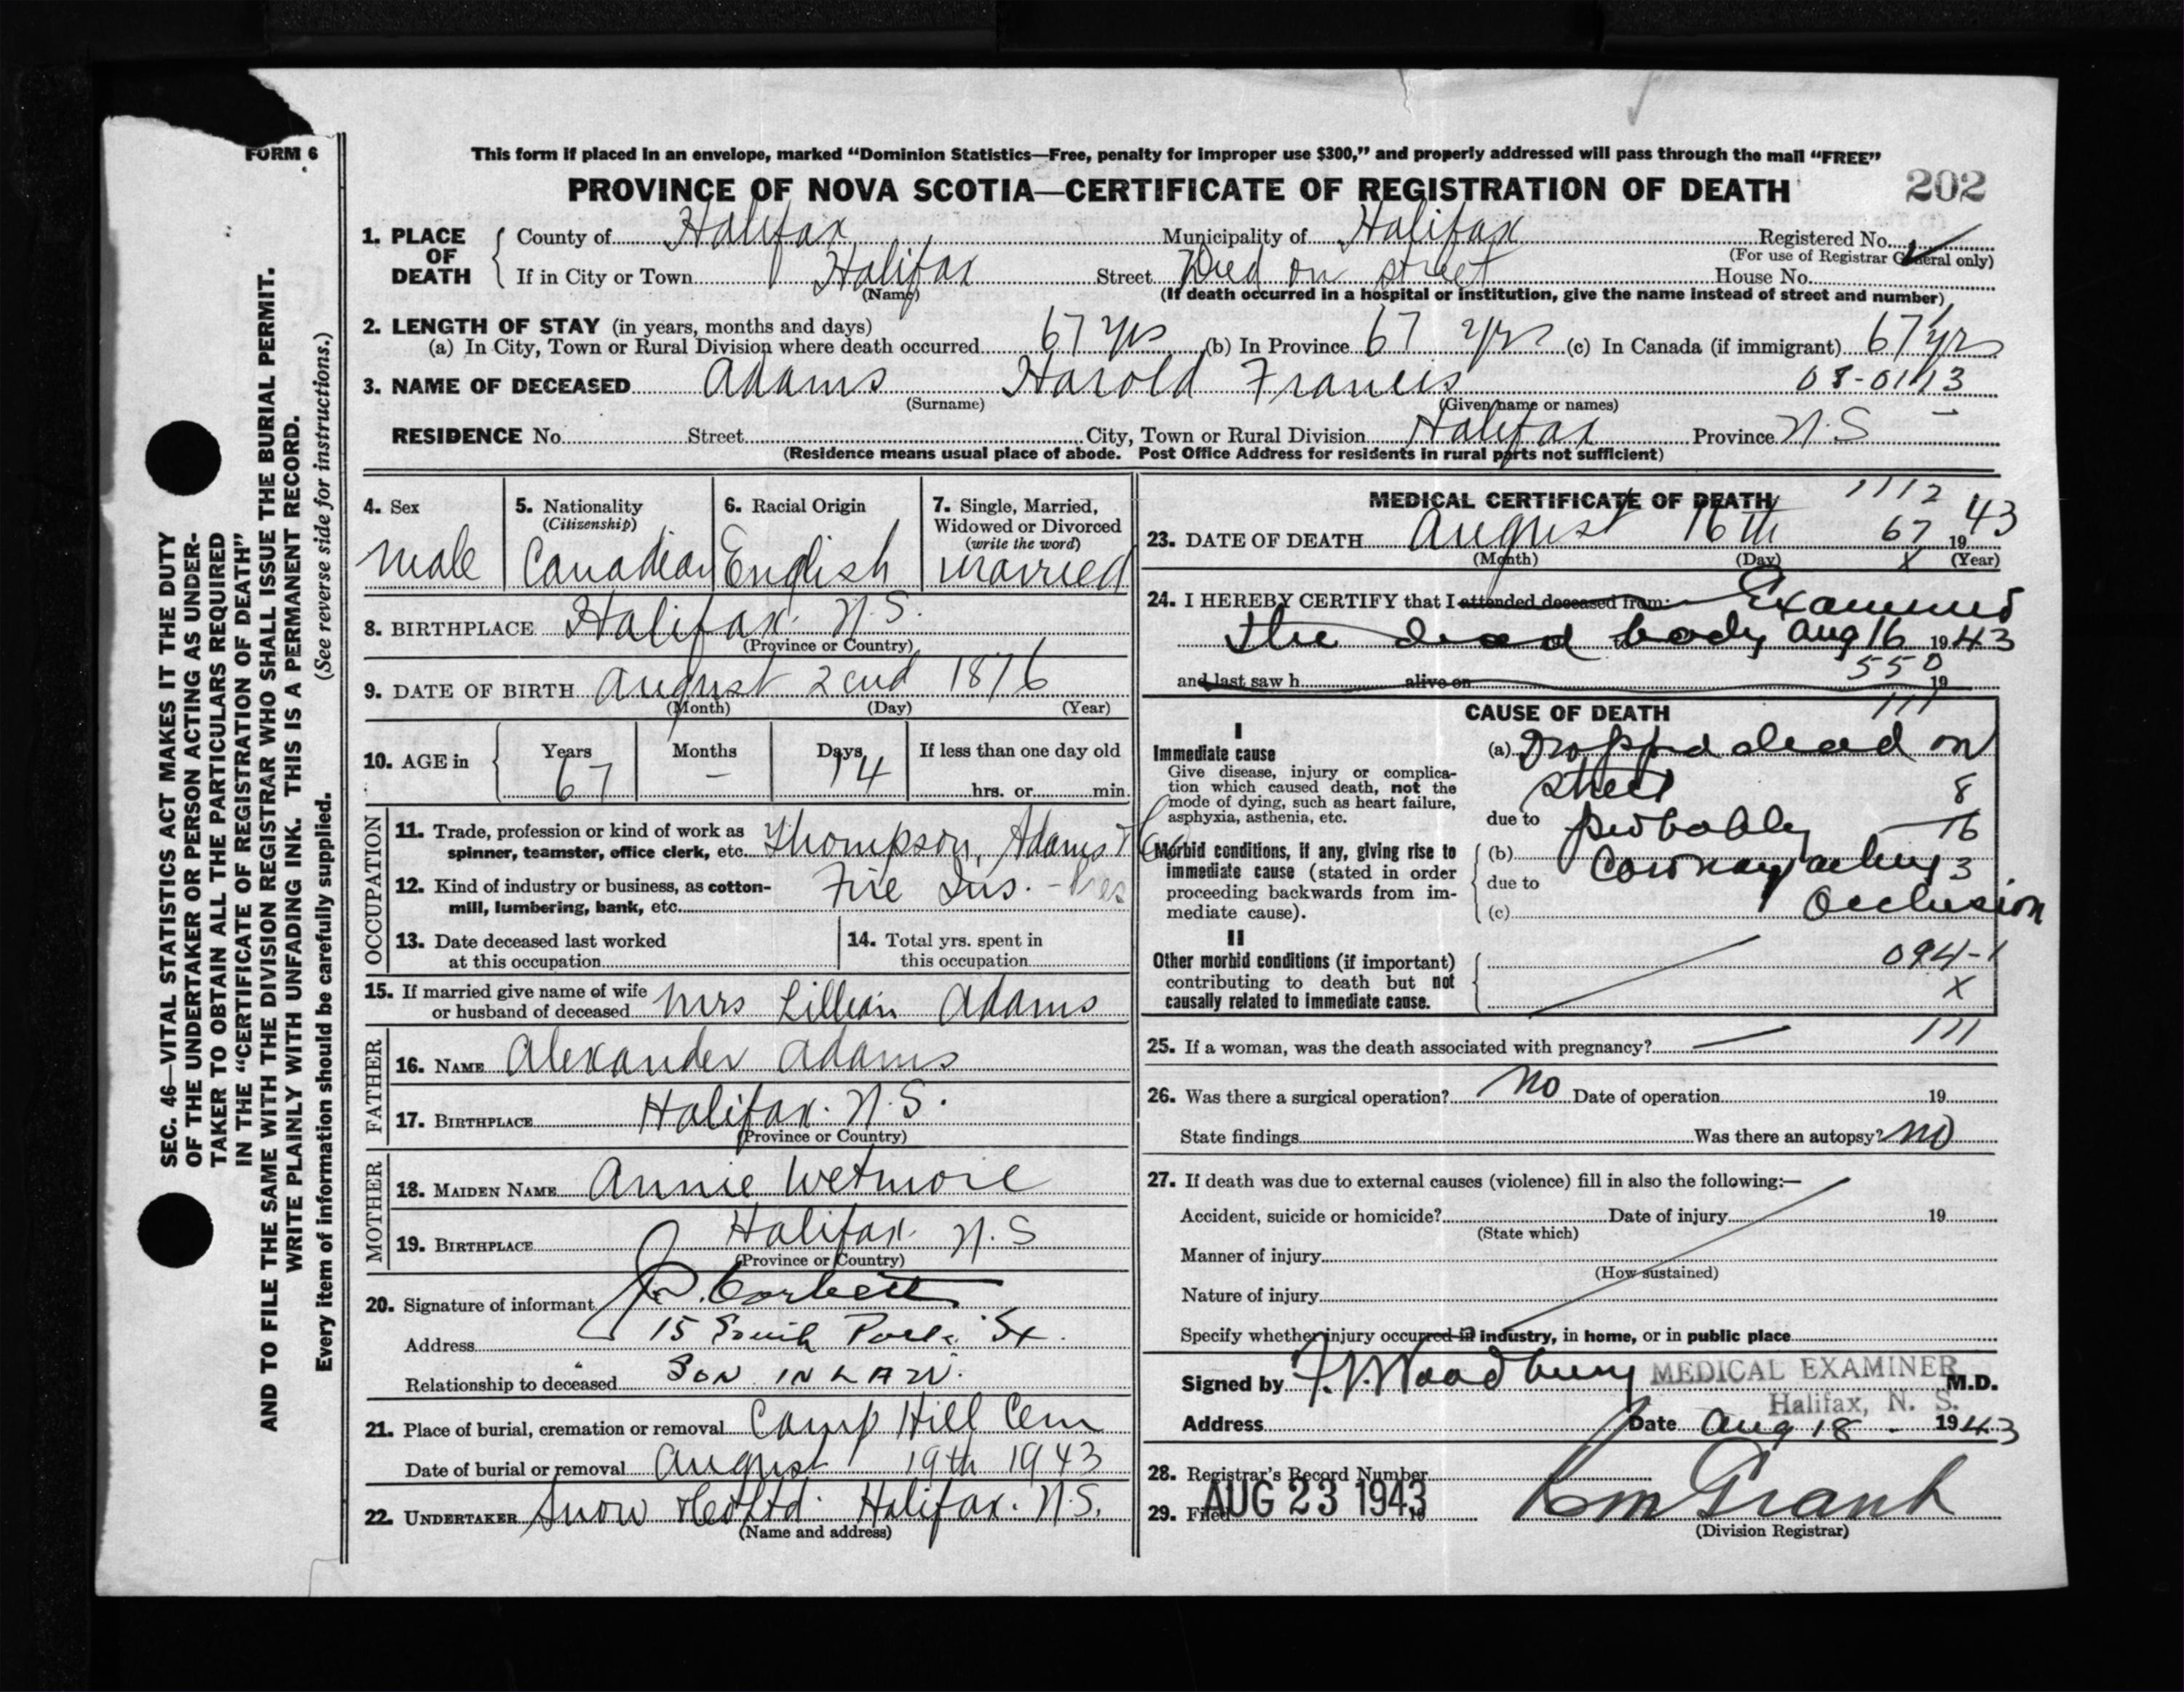 FORM 6
This form if placed in an envelope, marked “Dominion Statistics—Free, penalty for improper use $300,” and properly addressed will pass through the mail “FREE”
PROVINCE OF NOVA SCOTIA—CERTIFICATE OF REGISTRATION OF DEATH
202
1. PLACE OF DEATH
County of Halifax Municipality of Halifax Registered No.
(For use of Registrar General only)
If in City or Town Halifax Street Died on street House No.
(Name) (If death occurred in a hospital or institution, give the name instead of street and number)
2. LENGTH OF STAY (in years, months and days)
(a) In City, Town or Rural Division where death occurred 67 yrs (b) In Province 67 yrs (c) In Canada (if immigrant) 67 yrs
3. NAME OF DECEASED Adams Harold Francis
(Surname) (Given name or names)
RESIDENCE No. Street City, Town or Rural Division Halifax Province N.S
(Residence means usual place of abode. Post Office Address for residents in rural parts not sufficient)
4. Sex
male
5. Nationality
(Citizenship)
Canadian
6. Racial Origin
English
7. Single, Married,
Widowed or Divorced
(write the word)
married
8. BIRTHPLACE Halifax. N.S.
(Province or Country)
9. DATE OF BIRTH August 2cnd 1876
(Month) (Day) (Year)
10. AGE in
Years Months Days If less than one day old
67 – 14 hrs. or min.
OCCUPATION
11. Trade, profession or kind of work as
spinner, teamster, office clerk, etc. Thompson, Adams
12. Kind of industry or business, as cotton-
mill, lumbering, bank, etc. Fire Ins. - Pres
13. Date deceased last worked
at this occupation
14. Total yrs. spent in
this occupation
15. If married give name of wife
or husband of deceased Mrs Lillian Adams
FATHER
16. NAME Alexander Adams
17. BIRTHPLACE Halifax. N.S.
(Province or Country)
MOTHER
18. MAIDEN NAME Annie Wetmore
19. BIRTHPLACE Halifax. N.S
(Province or Country)
20. Signature of informant Corbett
Address 15 South Park St.
Relationship to deceased SON IN LAW.
21. Place of burial, cremation or removal Camp Hill Cem
Date of burial or removal August 19th 1943
22. UNDERTAKER Snow & Co Ltd. Halifax. N.S.
(Name and address)
MEDICAL CERTIFICATE OF DEATH
1112
23. DATE OF DEATH August 16th 67 1943
(Month) (Day) X (Year)
24. I HEREBY CERTIFY that I attended deceased from: Examined
the dead body Aug 16 1943
550
and last saw h alive on 19
111
CAUSE OF DEATH
I
Immediate cause
Give disease, injury or complica-
tion which caused death, not the
mode of dying, such as heart failure,
asphyxia, asthenia, etc.
(a) Dropped dead on
street
8
due to probably
16
Morbid conditions, if any, giving rise to
immediate cause (stated in order
proceeding backwards from im-
mediate cause).
(b) Coronary artery 3
due to Occlusion
(c)
II
Other morbid conditions (if important)
contributing to death but not
causally related to immediate cause.
094-1
X
25. If a woman, was the death associated with pregnancy? — 111
26. Was there a surgical operation? No Date of operation 19
State findings Was there an autopsy? No
27. If death was due to external causes (violence) fill in also the following:—
Accident, suicide or homicide? Date of injury 19
(State which)
Manner of injury
(How sustained)
Nature of injury
Specify whether injury occurred in industry, in home, or in public place
Signed by Woodbury MEDICAL EXAMINER M.D.
Halifax, N. S.
Address Date Aug 18 1943
28. Registrar's Record Number
29. Filed AUG 23 1943 19
Grant
(Division Registrar)
SEC. 46—VITAL STATISTICS ACT MAKES IT THE DUTY
OF THE UNDERTAKER OR PERSON ACTING AS UNDER-
TAKER TO OBTAIN ALL THE PARTICULARS REQUIRED
IN THE “CERTIFICATE OF REGISTRATION OF DEATH”
AND TO FILE THE SAME WITH THE DIVISION REGISTRAR WHO SHALL ISSUE THE BURIAL PERMIT.
WRITE PLAINLY WITH UNFADING INK. THIS IS A PERMANENT RECORD.
Every item of information should be carefully supplied. (See reverse side for instructions.)